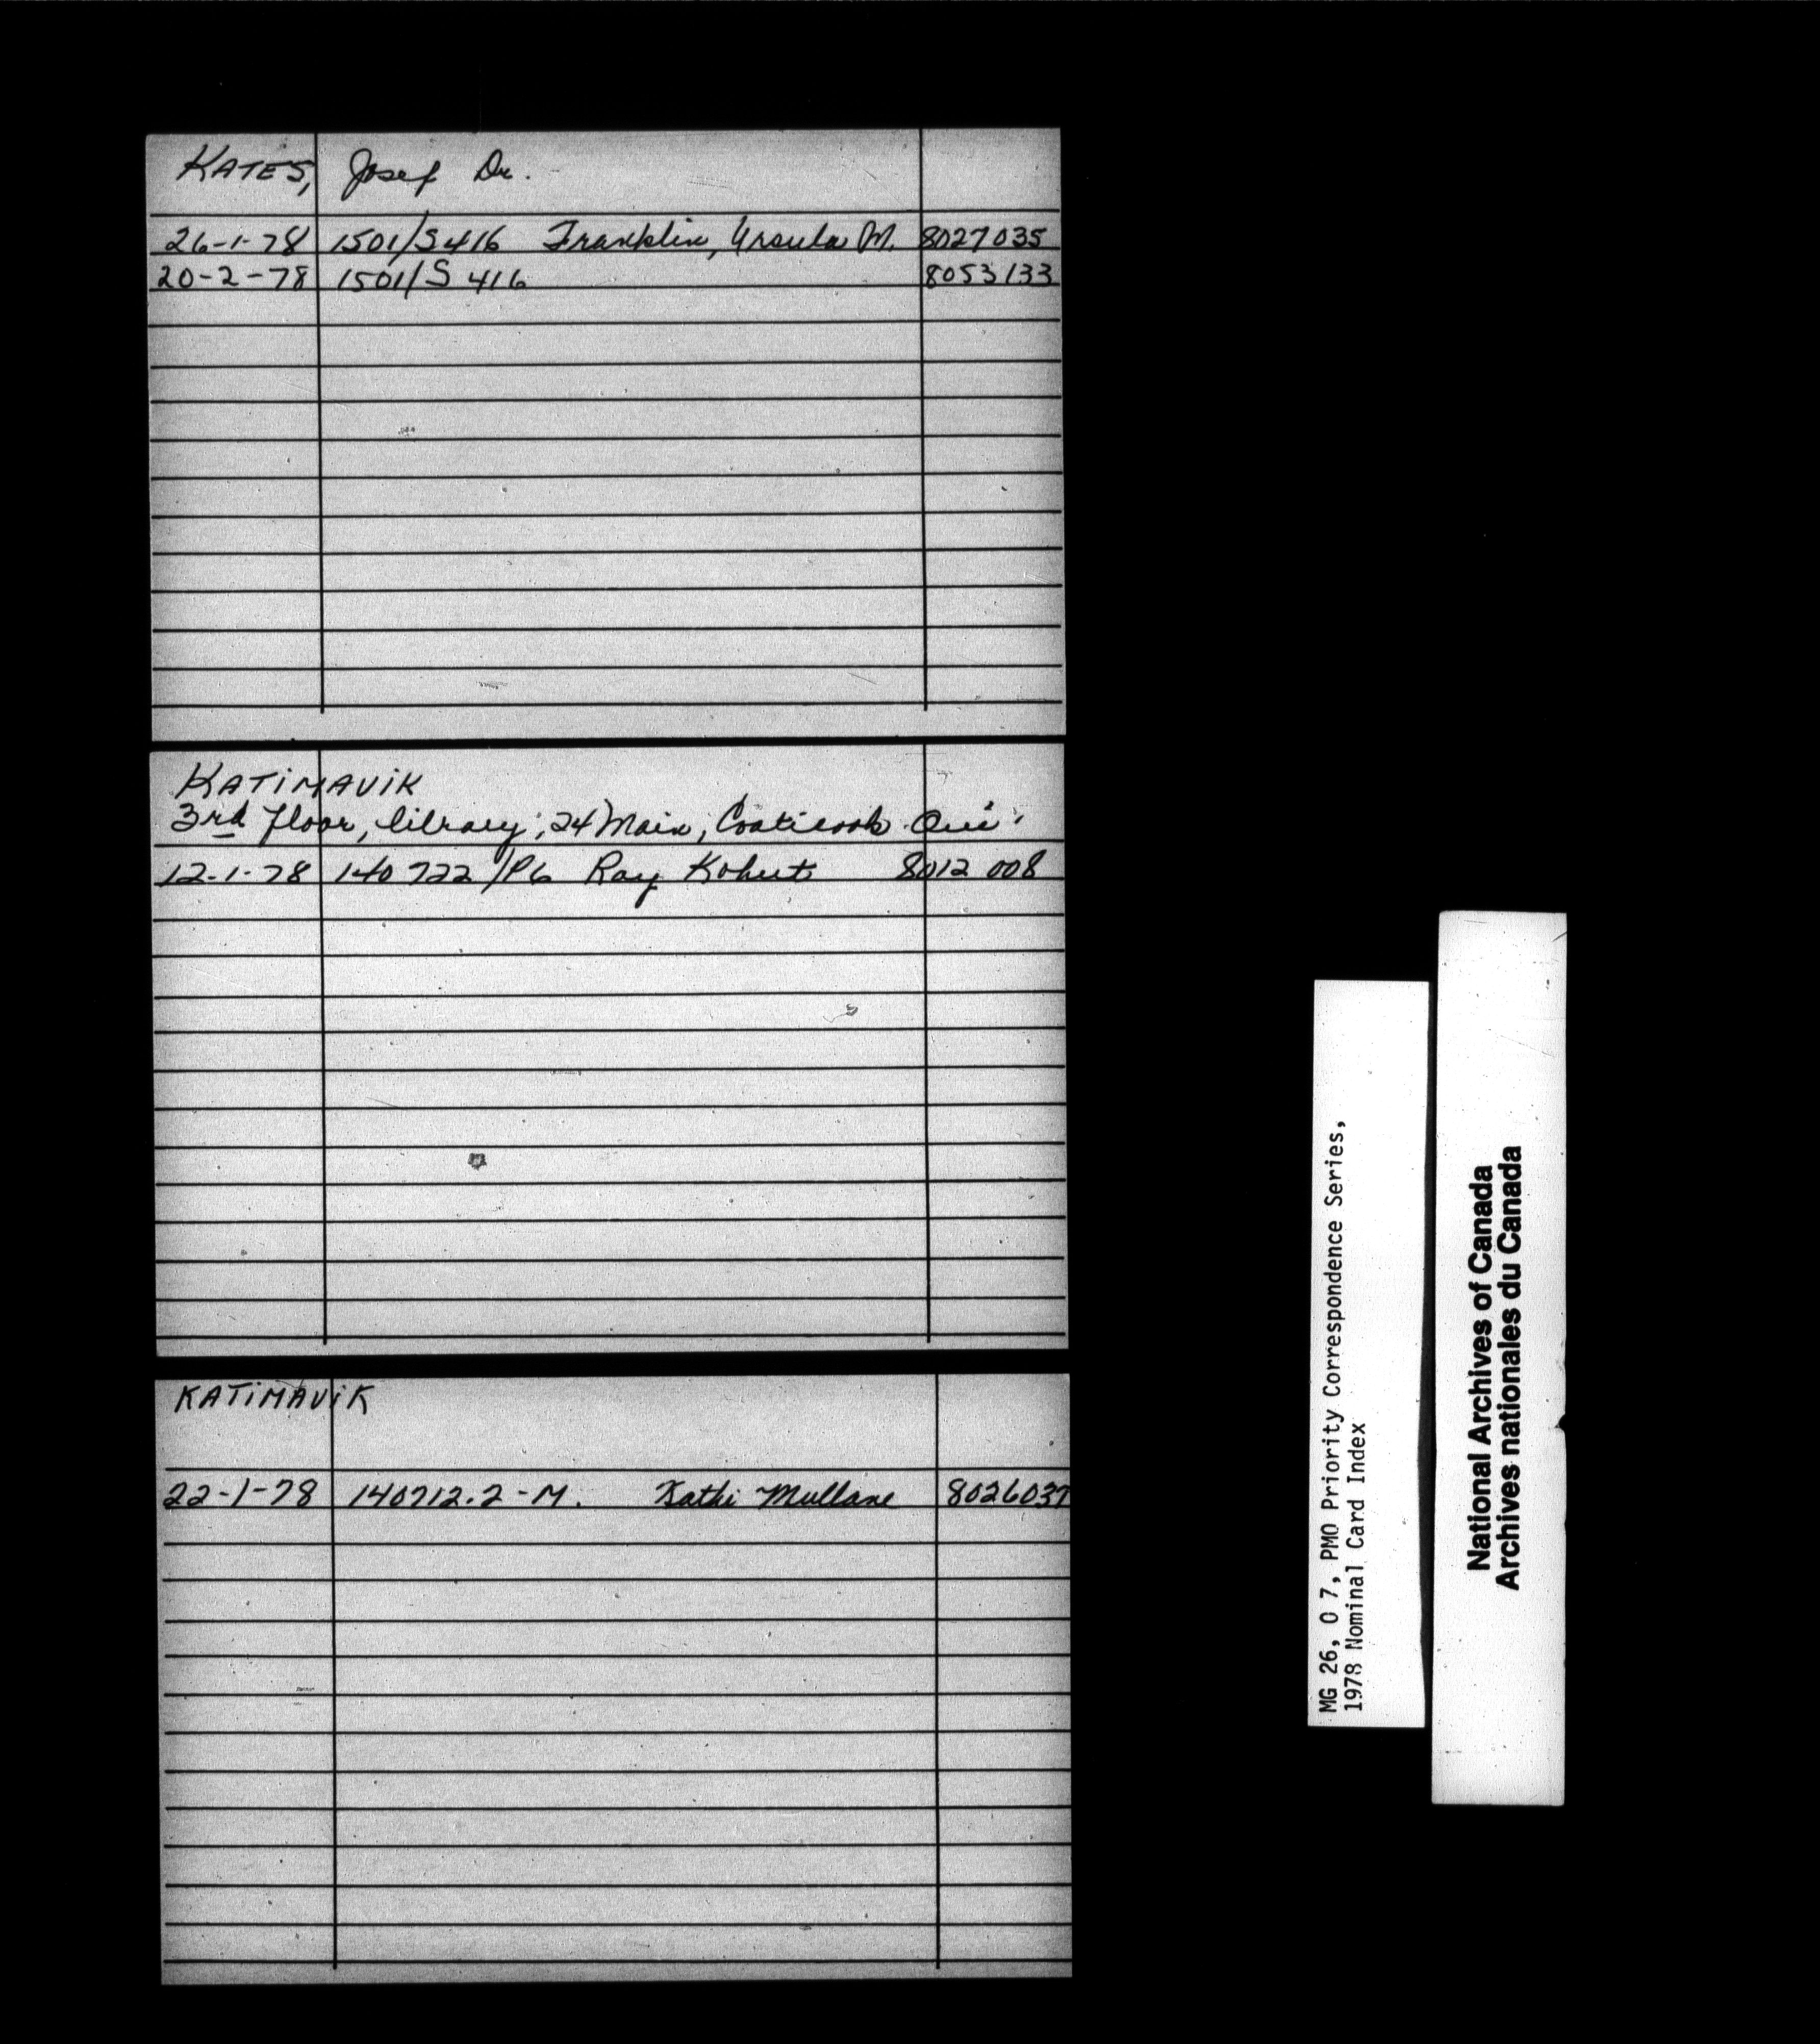 KATES, Josef Dr.
26-1-78 1501/S416 Franklin, Ursula M. 8027035
20-2-78 1501/S 416 8053133
KATiMAViK
3rd floor, library, 24 Main, Coaticook Qué.
12-1-78 140722/P6 Ray Kohut 8012 008
KATiMAViK
22-1-78 140712.2-M. Kathi Mullane 8026037
MG 26, O 7, PMO Priority Correspondence Series,
1978 Nominal Card Index
National Archives of Canada
Archives nationales du Canada